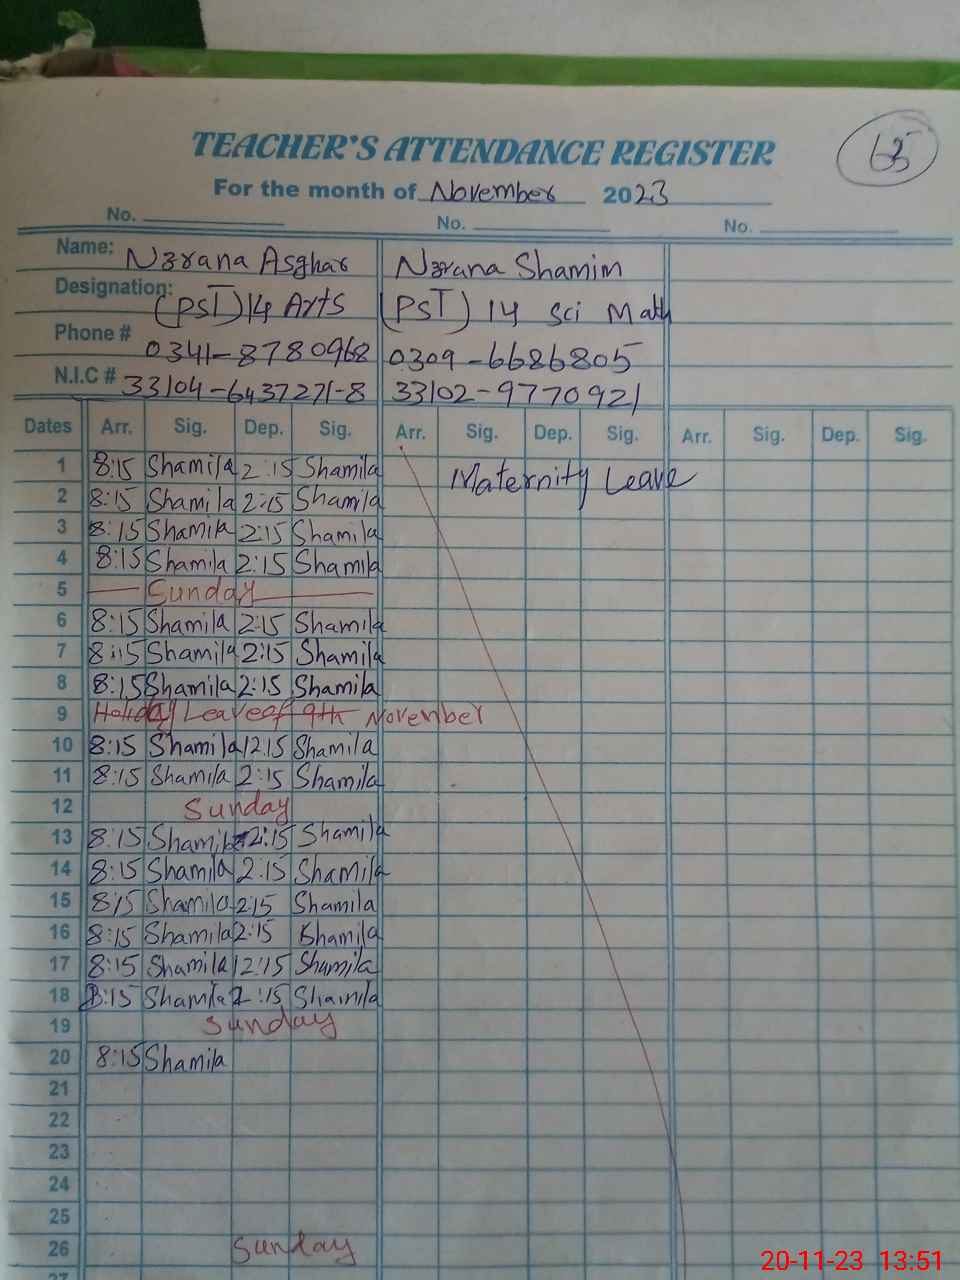 63
TEACHER'S ATTENDANCE REGISTER
For the month of November 2023
No. No. No.
Name: Nzrana Asghar Nzrana Shamim
Designation: (PST) 14 Arts (PST) 14 Sci Math
Phone # 0341-8780968 0309-6686805
N.I.C # 33104-6437271-8 33102-9770921
Dates Arr. Sig. Dep. Sig. Arr. Sig. Dep. Sig. Arr. Sig. Dep. Sig.
1 8:15 Shamila 2:15 Shamila Maternity Leave
2 8:15 Shamila 2:15 Shamila
3 8:15 Shamila 2:15 Shamila
4 8:15 Shamila 2:15 Shamila
5 Sunday
6 8:15 Shamila 2:15 Shamila
7 8:15 Shamila 2:15 Shamila
8 8:15 Shamila 2:15 Shamila
9 Holiday Leave of 9th November
10 8:15 Shamila 12:15 Shamila
11 8:15 Shamila 2:15 Shamila
12 Sunday
13 8:15 Shamila 2:15 Shamila
14 8:15 Shamila 2:15 Shamila
15 8:15 Shamila 2:15 Shamila
16 8:15 Shamila 2:15 Shamila
17 8:15 Shamila 12:15 Shamila
18 8:15 Shamila 2:15 Shamila
19 Sunday
20 8:15 Shamila
21
22
23
24
25
26 Sunday
27
20-11-23 13:51